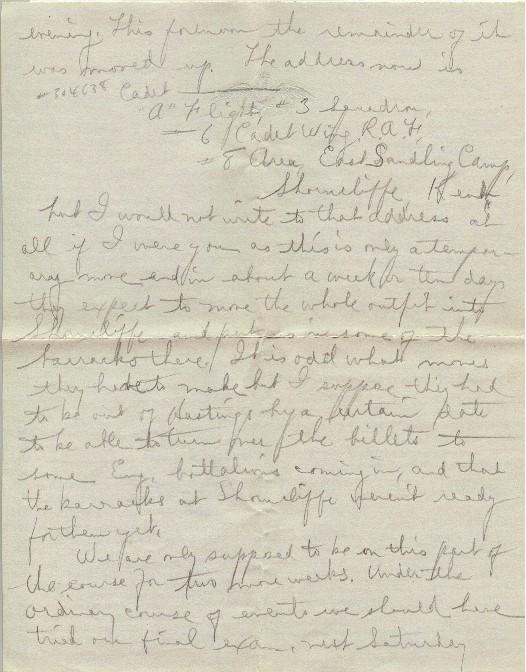 evening. This forenoon the remainder of it
was moved up. The address now is
Cadet
"A" Flight, #3 Squadron,
6 Cadet Wing, R.A.F.,
#8 Area, East Sandling Camp,
Shorncliffe, Kent
but I would not write to that address at
all if I were you as this is only a tempor-
ary move and in about a week or ten days
they expect to move the whole outfit into
Shorncliffe and put us in some of the
barracks there. It is odd what moves
they have to make but I suppose they had
to be out of Hastings by a certain date
to be able to turn over the billets to
some Eng. battalions coming in, and that
the barracks at Shorncliffe weren't ready
for them yet.
We are only supposed to be on this part of
the course for two more weeks. Under the
ordinary course of events we should have
tried our final exam. next Saturday